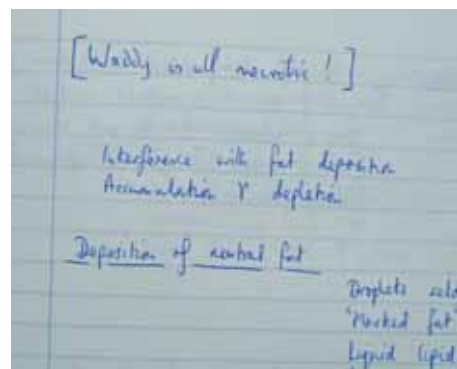 [Waddy is all necrotic!]
Interference with fat deposition
Accumulation & depletion
Deposition of neutral fat
Droplets
"Masked fat"
Liquid lipid